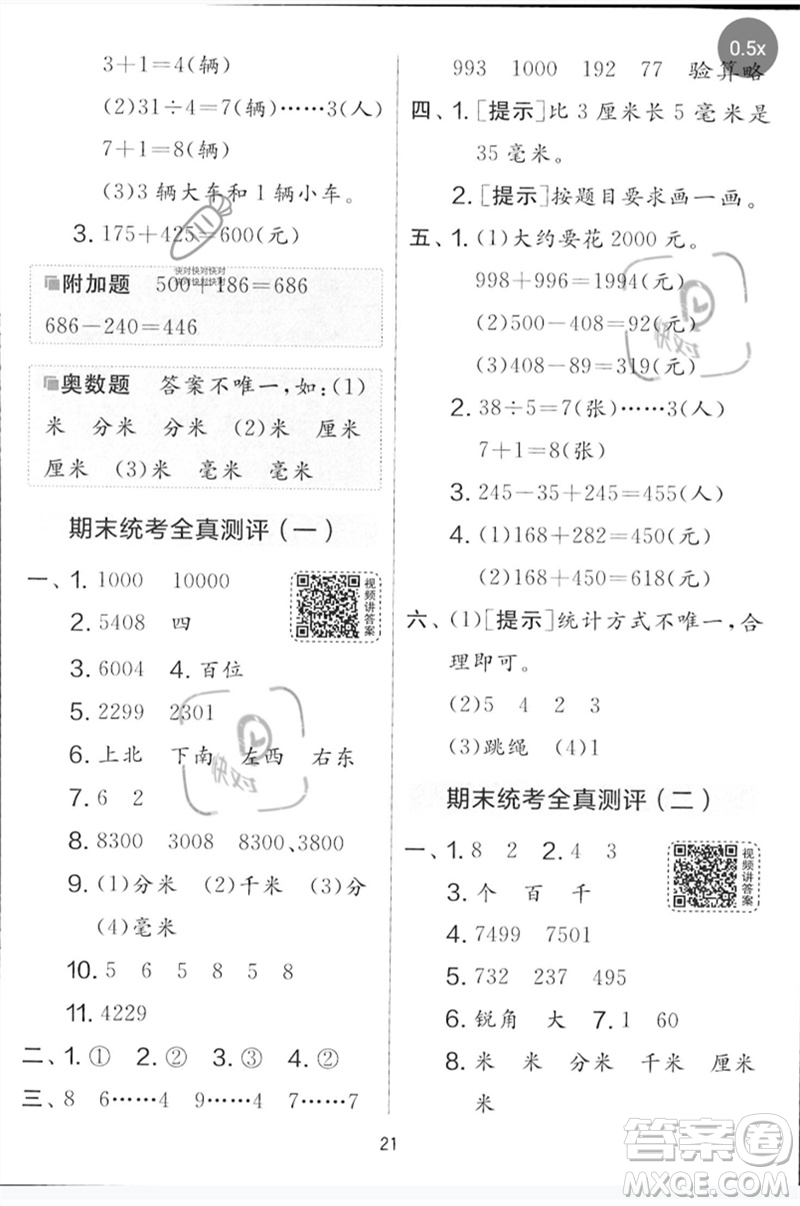 0.5x
3+1=4(辆)
(2)31÷4=7(辆)……3(人)
7+1=8(辆)
(3)3 辆大车和 1 辆小车。
3. 175+425=600(元)
快对快对快对
快对快对快对
附加题 500+186=686
686-240=446
奥数题 答案不唯一,如:(1)
米 分米 分米 (2)米 厘米
厘米 (3)米 毫米 毫米
期末统考全真测评(一)
一、1. 1000 10000
2. 5408 四
视频讲答案
3. 6004 4. 百位
5. 2299 2301
6. 上北 下南 左西 右东
7. 6 2
8. 8300 3008 8300、3800
9. (1)分米 (2)千米 (3)分
(4)毫米
10. 5 6 5 8 5 8
11. 4229
二、1. ① 2. ② 3. ③ 4. ②
三、8 6……4 9……4 7……7
993 1000 192 77 验算略
四、1. [提示]比 3 厘米长 5 毫米是
35 毫米。
2. [提示]按题目要求画一画。
五、1. (1)大约要花 2000 元。
998+996=1994(元)
(2)500-408=92(元)
(3)408-89=319(元)
快对
2. 38÷5=7(张)……3(人)
7+1=8(张)
3. 245-35+245=455(元)
4. (1)168+282=450(元)
(2)168+450=618(元)
六、(1)[提示]统计方式不唯一,合
理即可。
(2)5 4 2 3
(3)跳绳 (4)1
快对
期末统考全真测评(二)
一、1. 8 2 2. 4 3
视频讲答案
3. 个 百 千
4. 7499 7501
5. 732 237 495
6. 锐角 大 7. 1 60
8. 米 米 分米 千米 厘米
米
21
答案卷
MXQE.COM